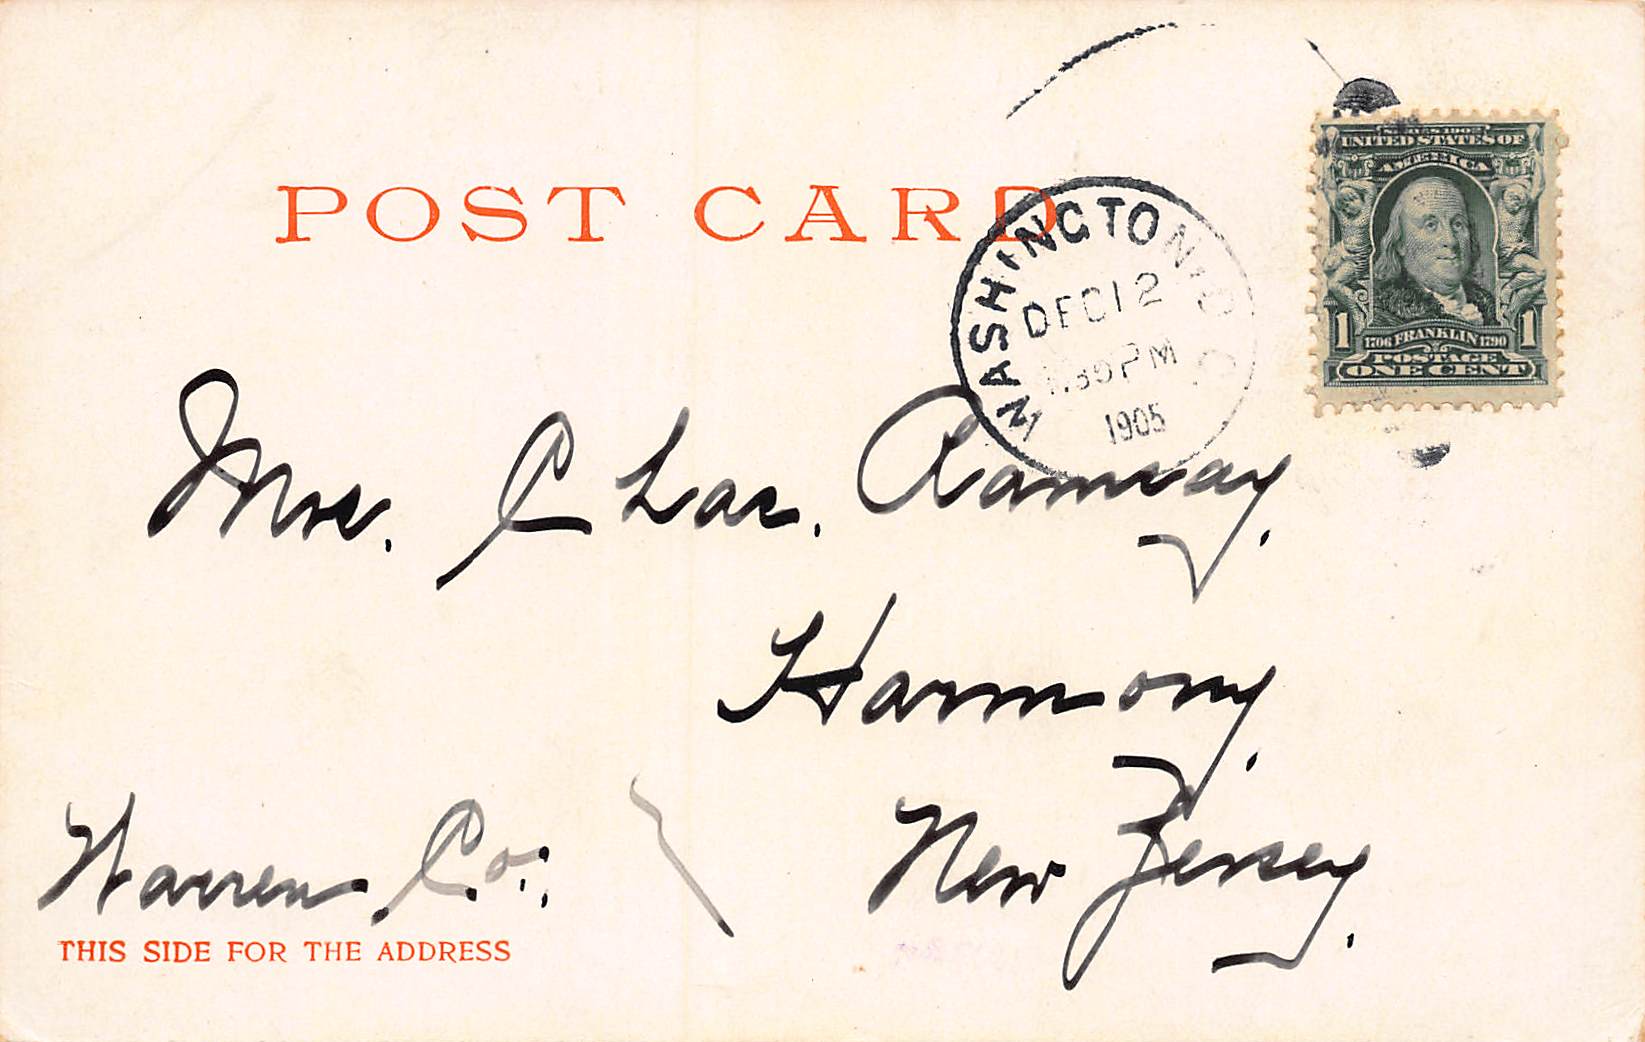 POST CARD
WASHINGTON, D.C.
DEC 12
30 PM
1905
SERIES 1902
UNITED STATES OF
AMERICA
1 1706 FRANKLIN 1790 1
POSTAGE
ONE CENT
Mrs. Chas. Ramsay.
Harmony,
Warren Co., New Jersey.
THIS SIDE FOR THE ADDRESS